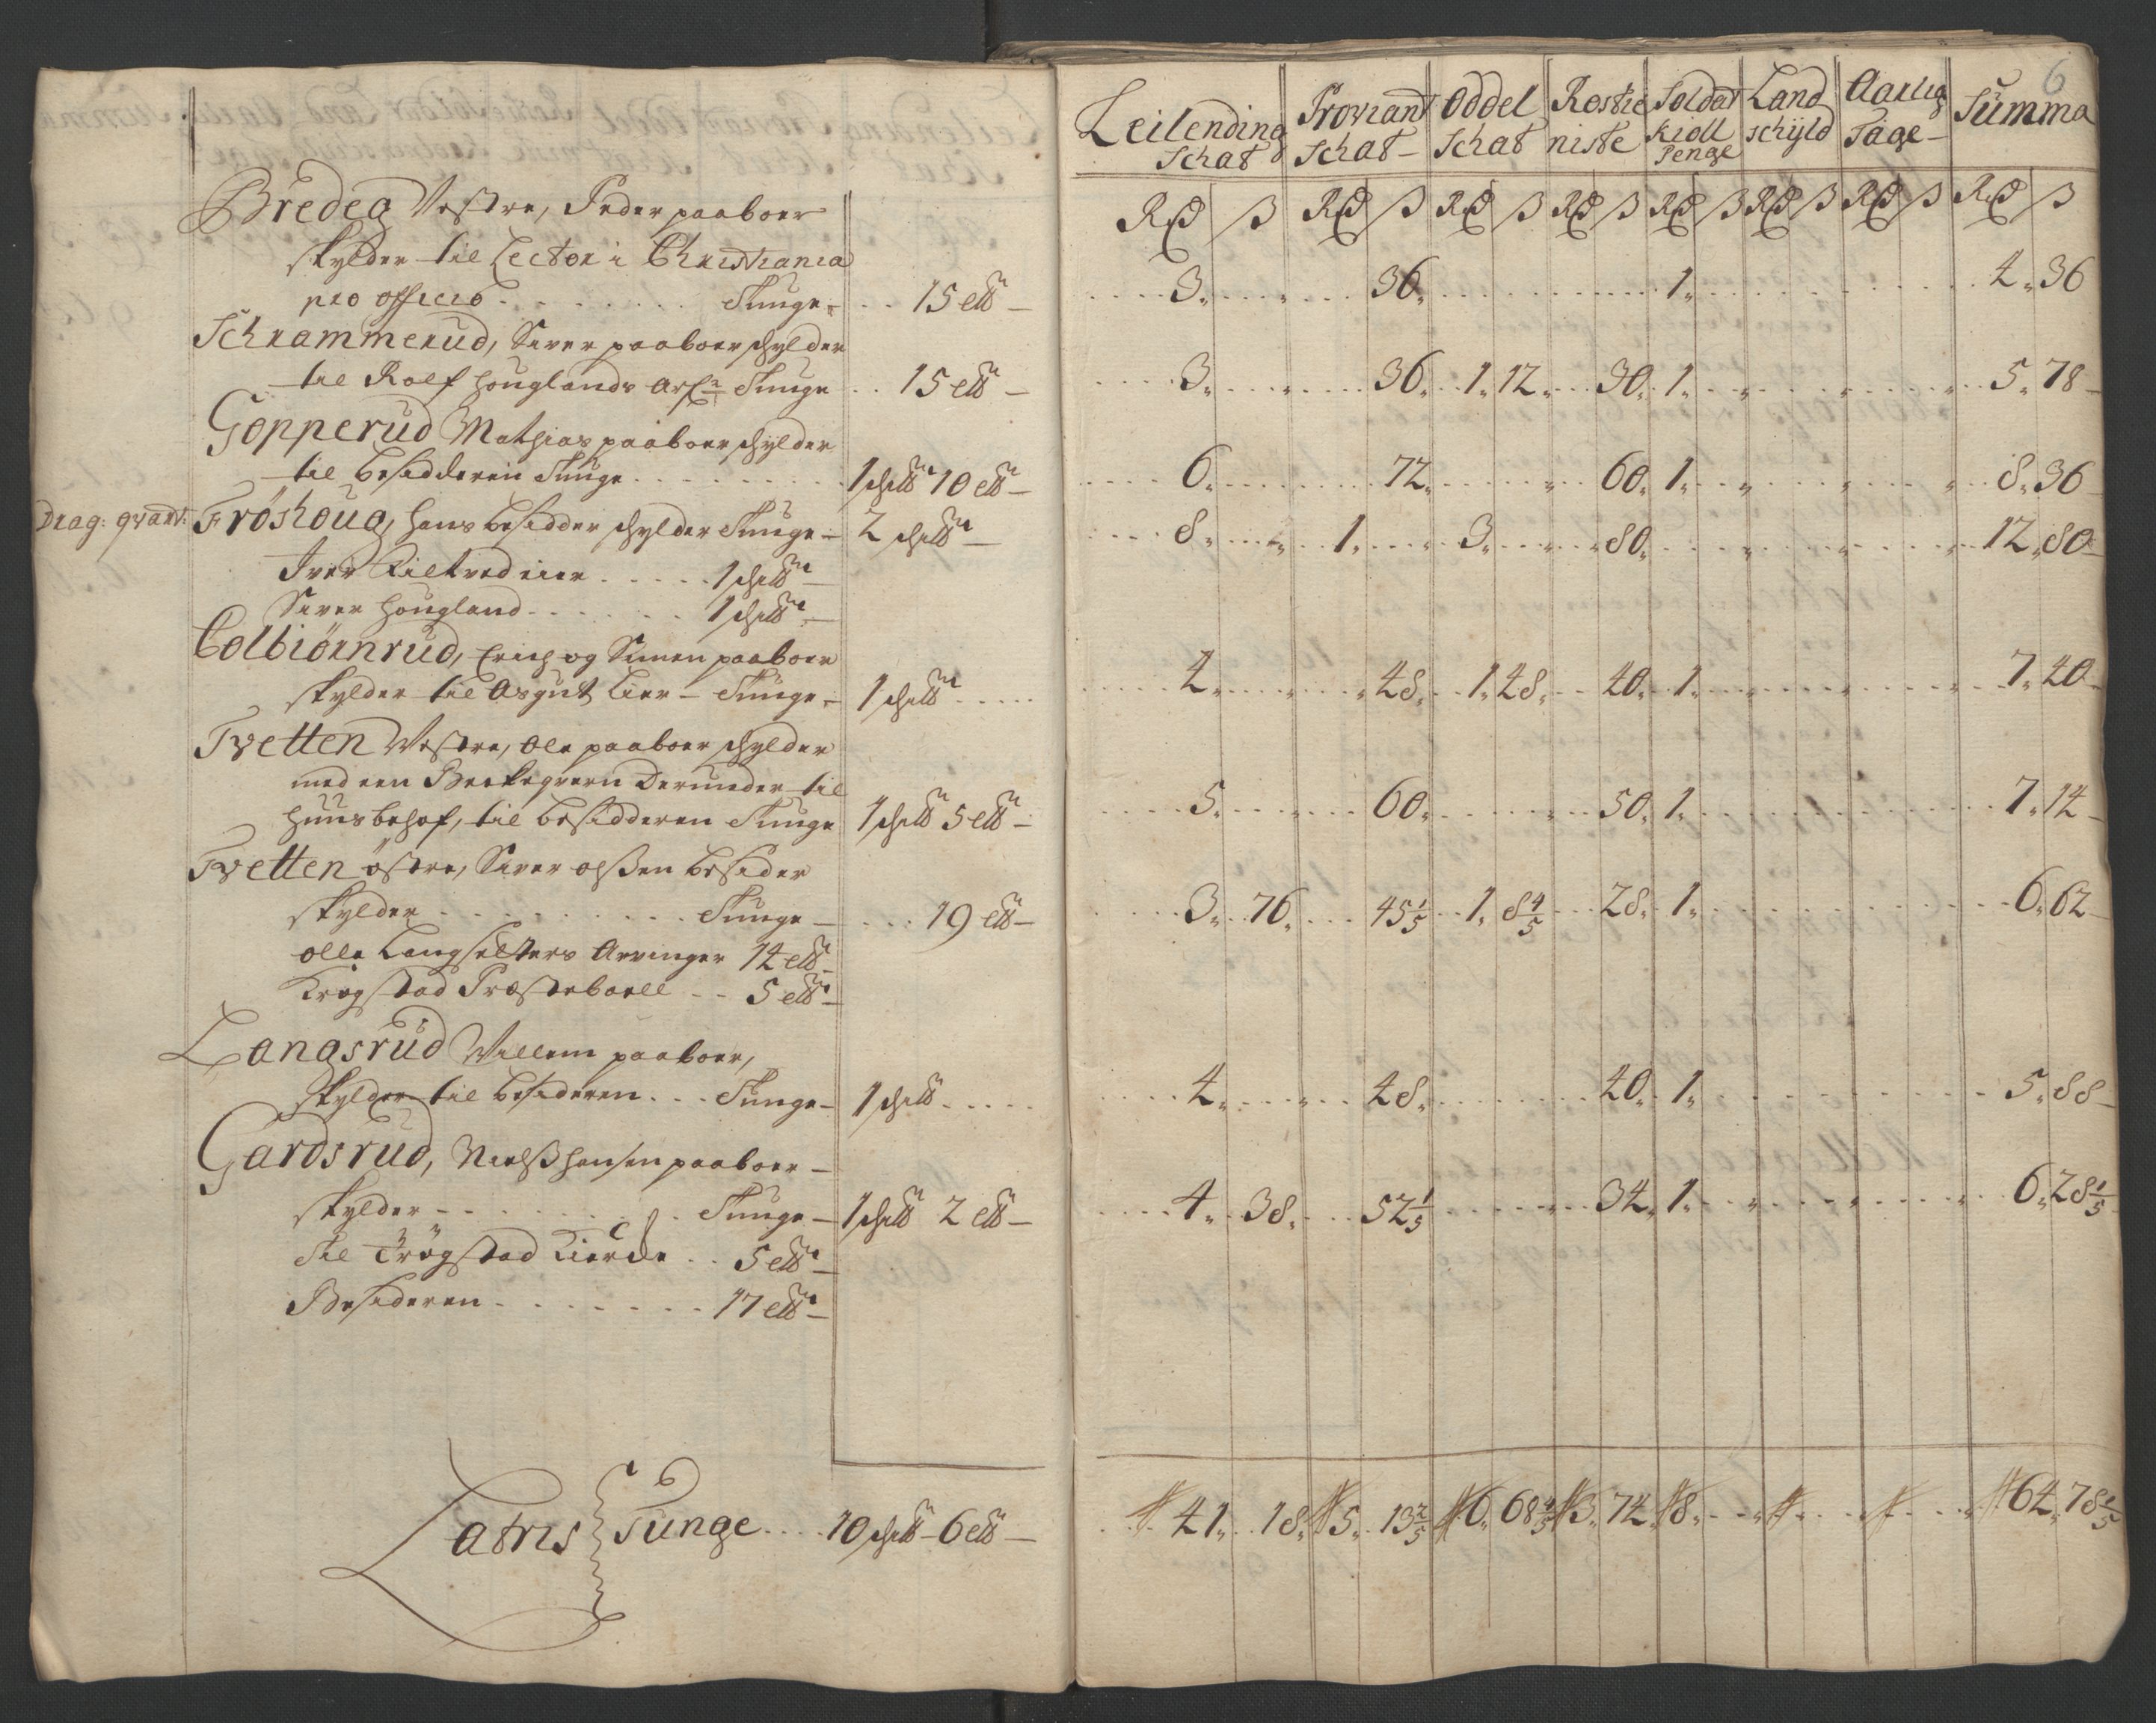 Bredeg Vestre, Peder paaboer
skylder til Lector i Christiania
pro officio - - - - - - Tunge - - - 15 ℔ -
Schrammerud, Siver paaboer schylder
til Rolf Houglands Arf: Tunge - - 15 ℔ -
Gopperud Mathias paaboer schylder
til besidderen Tunge - - - - - 1 sch℔ 10 ℔ -
Drag: qvart: Fröshoug, Hans besidder schylder Tunge - 2 sch℔ -
Iver eier - - - - - 1 sch℔ -
Siver Hougland - - - - - 1 sch℔ -
Colbiörnrud, Erich og Simen paaboer
skylder til Asgut Lier - Tunge - 1 sch℔ - - - -
Tvetten Vestre, Ole paaboer schylder
med een Beckeqvern derunder til
Huusbehof, til besidderen Tunge 1 sch℔ 5 ℔ -
Tvetten östre, Siver Olßen besider
skylder - - - - - - - Tunge - - - - 19 ℔ -
Olle Langsetters Arvinger 14 ℔ -
Krogstad Præsteboell - - 5 ℔ -
Langsrud Willem paaboer,
skylder til besideren - - - Tunge - 1 sch℔ - - - -
Gardsrud, Nielß Hansen paaboer -
skylder - - - - - - - Tunge - 1 sch℔ 2 ℔ -
til Trögstad Kierche - - 5 ℔ -
Besideren - - - - - - - 17 ℔ -
Latris Tunge - - - - 10 sch℔ - 6 ℔ -
6
Leilending Schat | Proviant Schat - | Oddel Schat | Rostie niste | Soldat Kioll Penge | Land schyld | Aarlig Tage - | Summa
Rd | β | Rd | β | Rd | β | Rd | β | Rd | β | Rd | β | Rd | β | Rd | β
3 - - - 36 - - - 1 - - - 4. 36
3 - - - 36 - 1. 12 - - 30 - 1 - - - 5. 78 -
6 - - - 72 - - - 60. 1 - - - 8. 36
8 - - - 1 - - 3 - - - 80 - - - 12. 80 -
4 - - - 48 - 1. 48 - - 40 - 1 - - - 7. 40 -
5 - - - 60 - - - 50. 1 - - - 7. 14 -
3. 76 - - 45 1/5 - 1. 8 4/5 - - 28 - 1 - - - 6. 62 -
4 - - - 48 - - - 40 - 1 - - - 5. 88 -
4. 38 - - 52 1/5 - - - 34. 1 - - - 6. 28 1/5
41. 18. 5. 13 2/5 6. 68 4/5 3. 74. 8. - - - - 64. 78 1/5